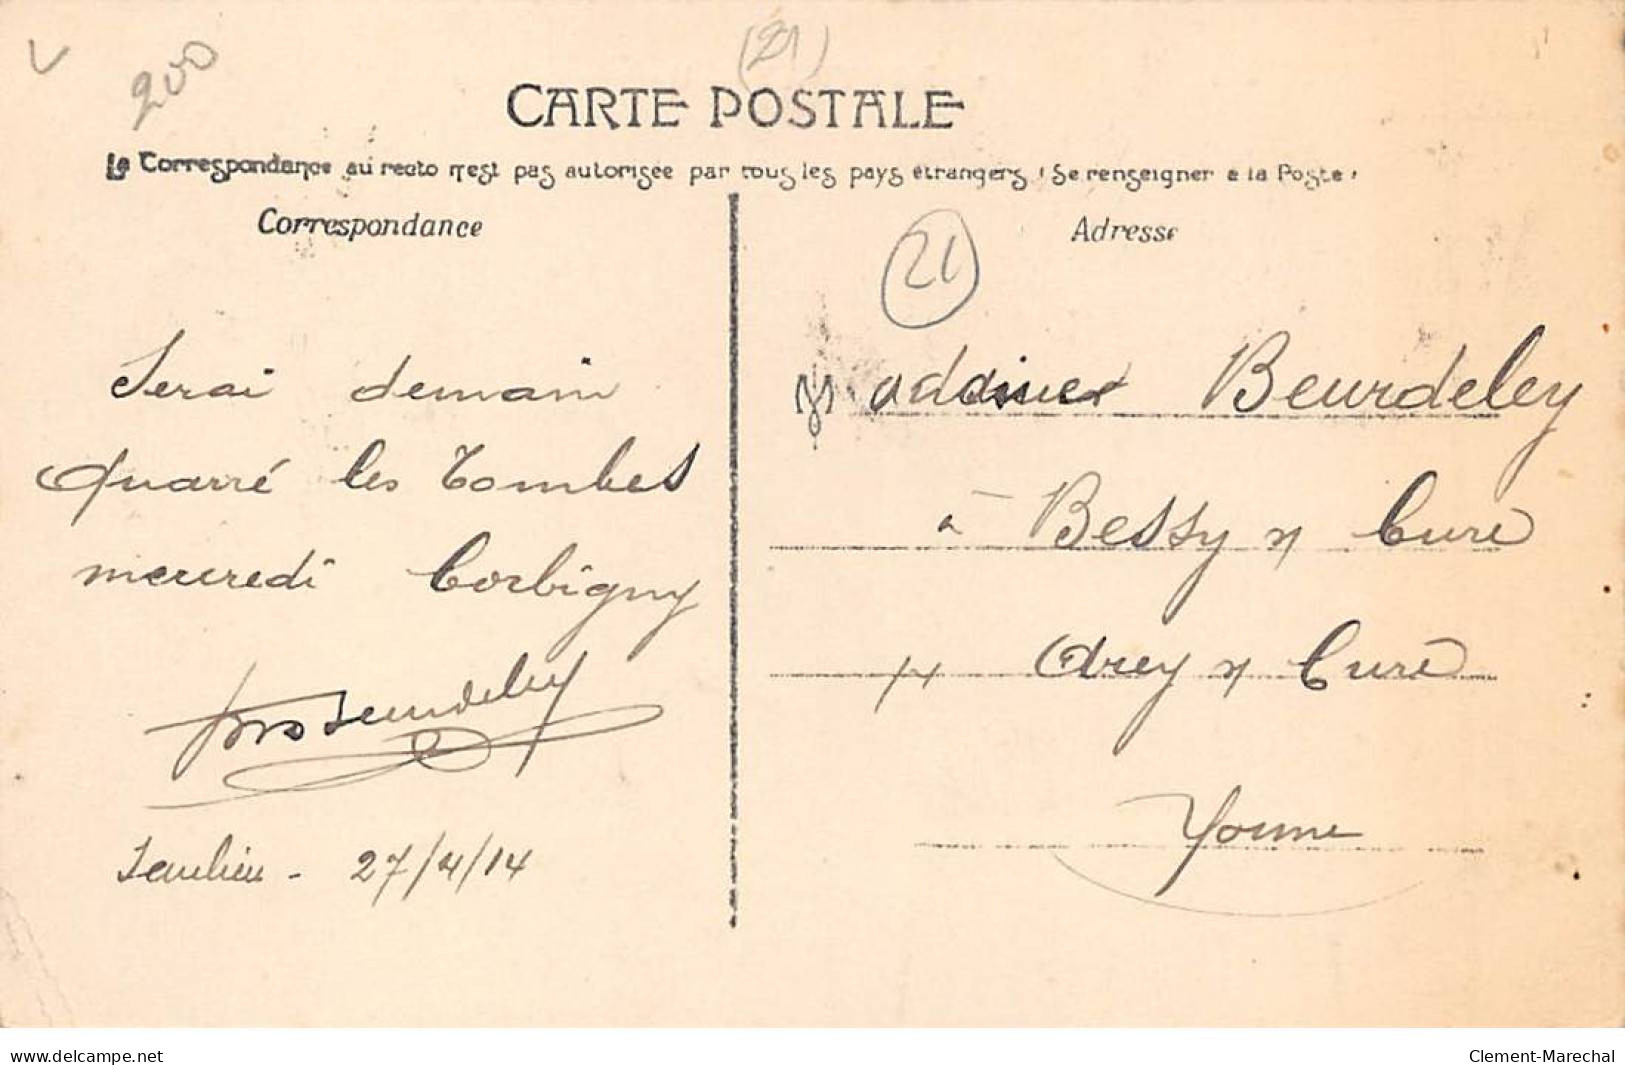 200
(21)
CARTE POSTALE
La Correspondance au recto n'est pas autorisée par tous les pays étrangers (Se renseigner à la Poste)
Correspondance
Serai demain
Quarré les Tombes
mercredi Corbigny
Beurdeley
Saulieu - 27/4/14
Adresse
21
Madame Beurdeley
à Bessy s/ Cure
Arcy s/ Cure
Yonne
www.delcampe.net
Clement-Marechal